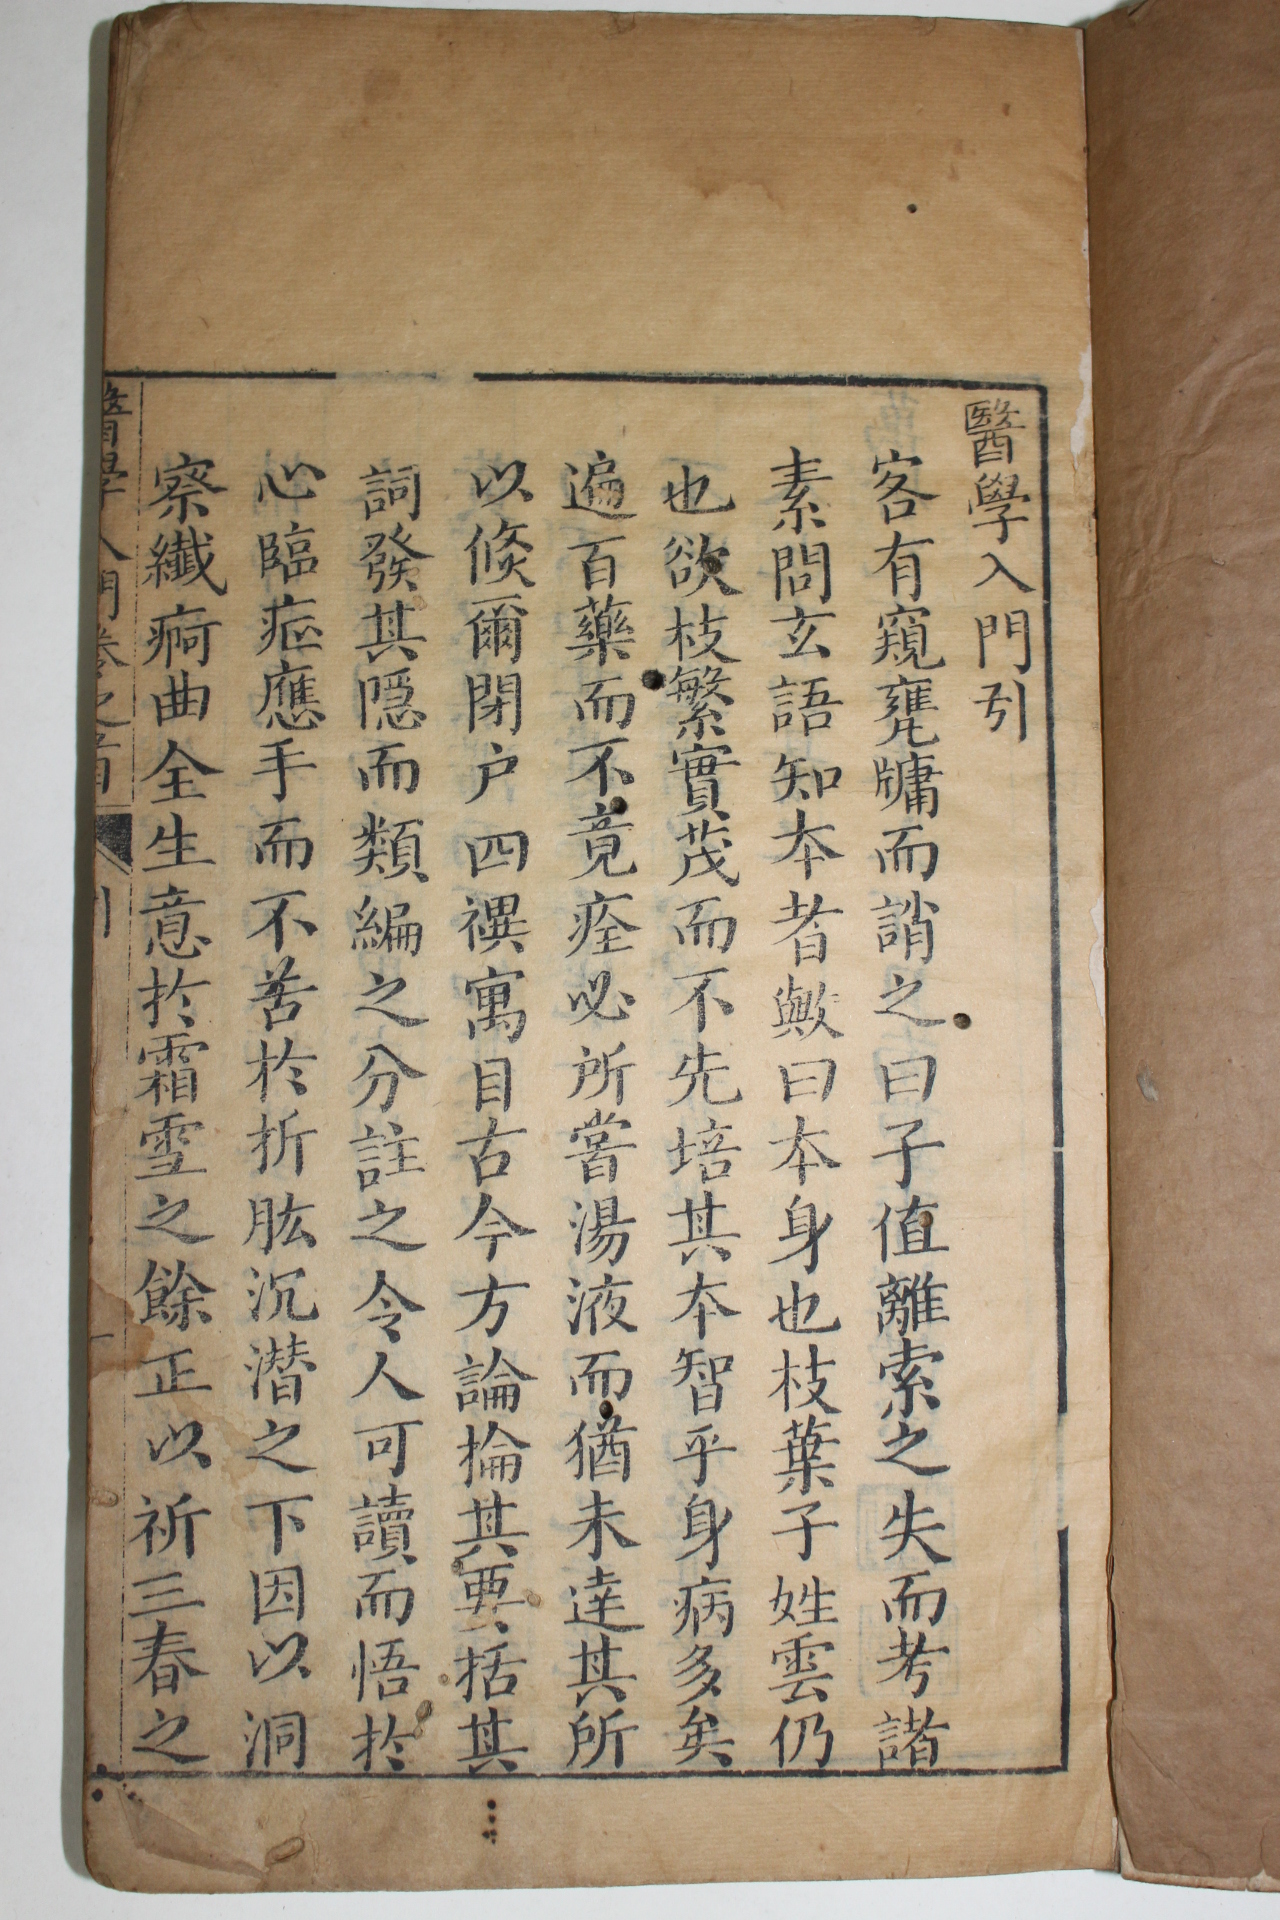 醫學入門引
客有窺甕牖而誚之曰子值離索之失而考諧
素問玄語知本者歟曰本身也枝葉子姓雲仍
也欲枝繁實茂而不先培其本智乎身病多矣
遍百藥而不竟痊必所嘗湯液而猶未達其所
以倐爾閉户四禩寓目古今方論掄其要括其
詞發其隠而類編之分註之令人可讀而悟於
心臨症應手而不苦於折肱沉潛之下因以洞
察纖痾曲全生意於霜雪之餘正以祈三春之
醫學入門卷之首 引 一